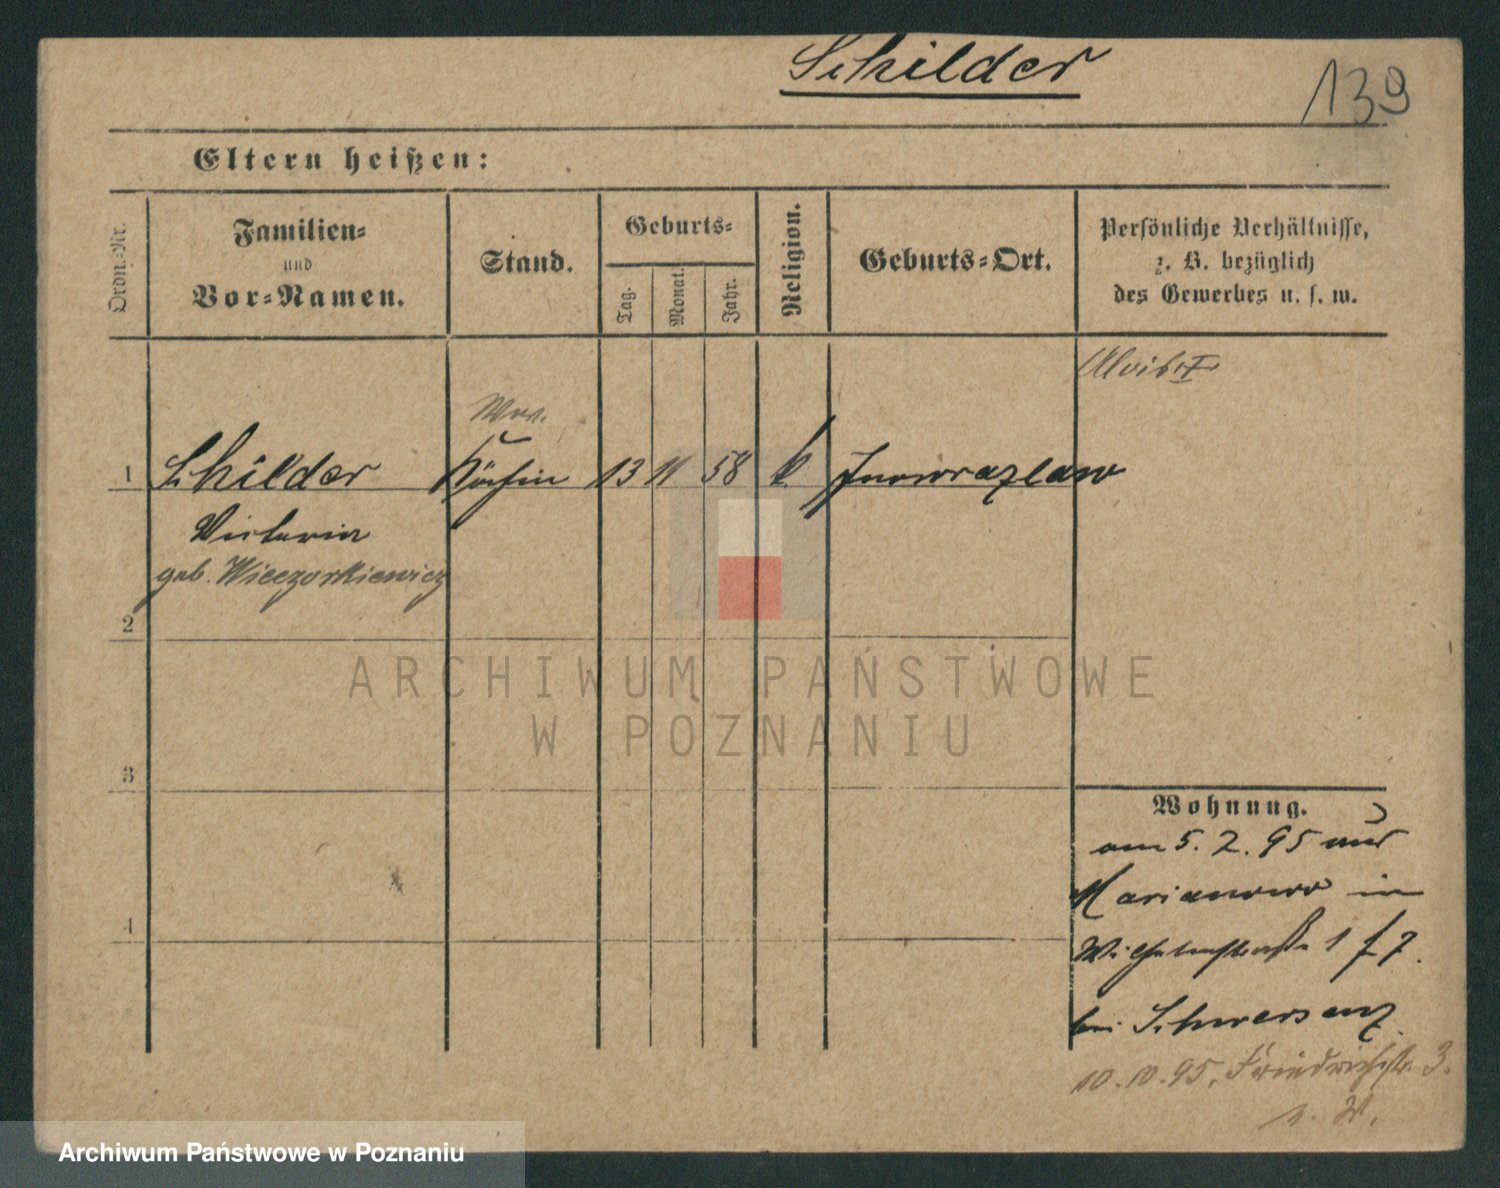 Schilder
139
Eltern heißen:
Ordn.-Nr.
Familien-
und
Vor-Namen.
Stand.
Geburts-
Tag.
Monat.
Jahr.
Religion.
Geburts-Ort.
Persönliche Verhältnisse,
z. B. bezüglich
des Gewerbes u. s. w.
Ww.
1 Schilder Köchin 13 11 58 k. Inowrazlaw
Victoria
geb. Wieczorkiewicz
2
3
4
Wohnung.
am 5. 2. 95 aus
Marianowo in
Wilhelmstraße 1
bei Schwersenz.
10.10.95. Friedrichstr. 3.
ARCHIWUM PAŃSTWOWE
W POZNANIU
Archiwum Państwowe w Poznaniu